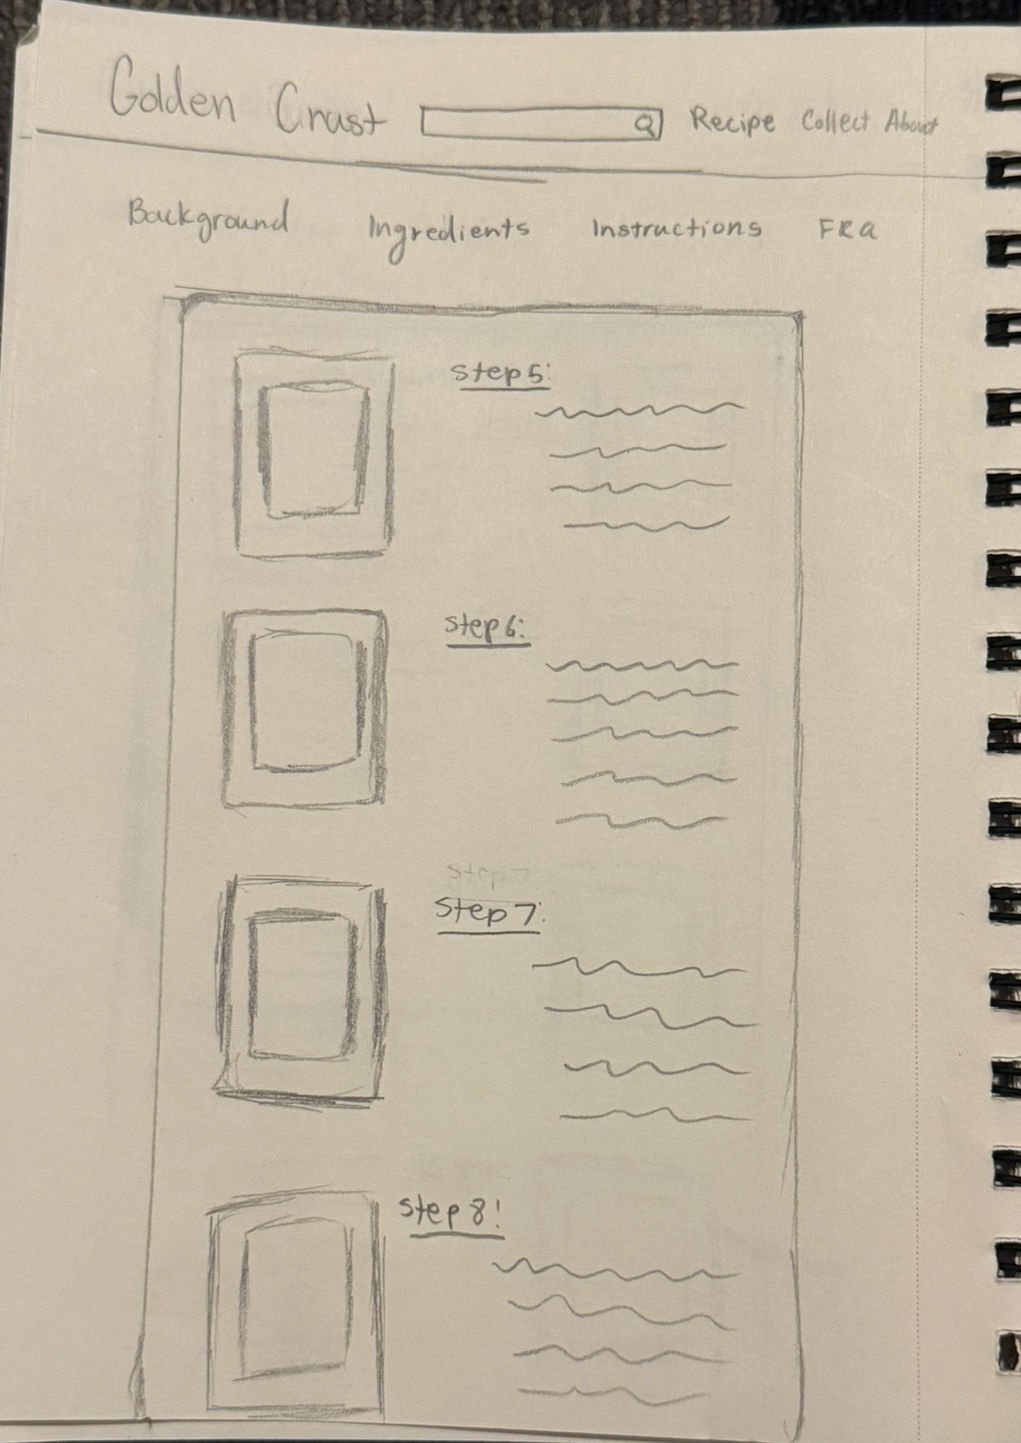 Golden Crust Recipe Collect About
Background Ingredients Instructions FRQ
Step 5:
Step 6:
Step 7
Step 7:
Step 8!